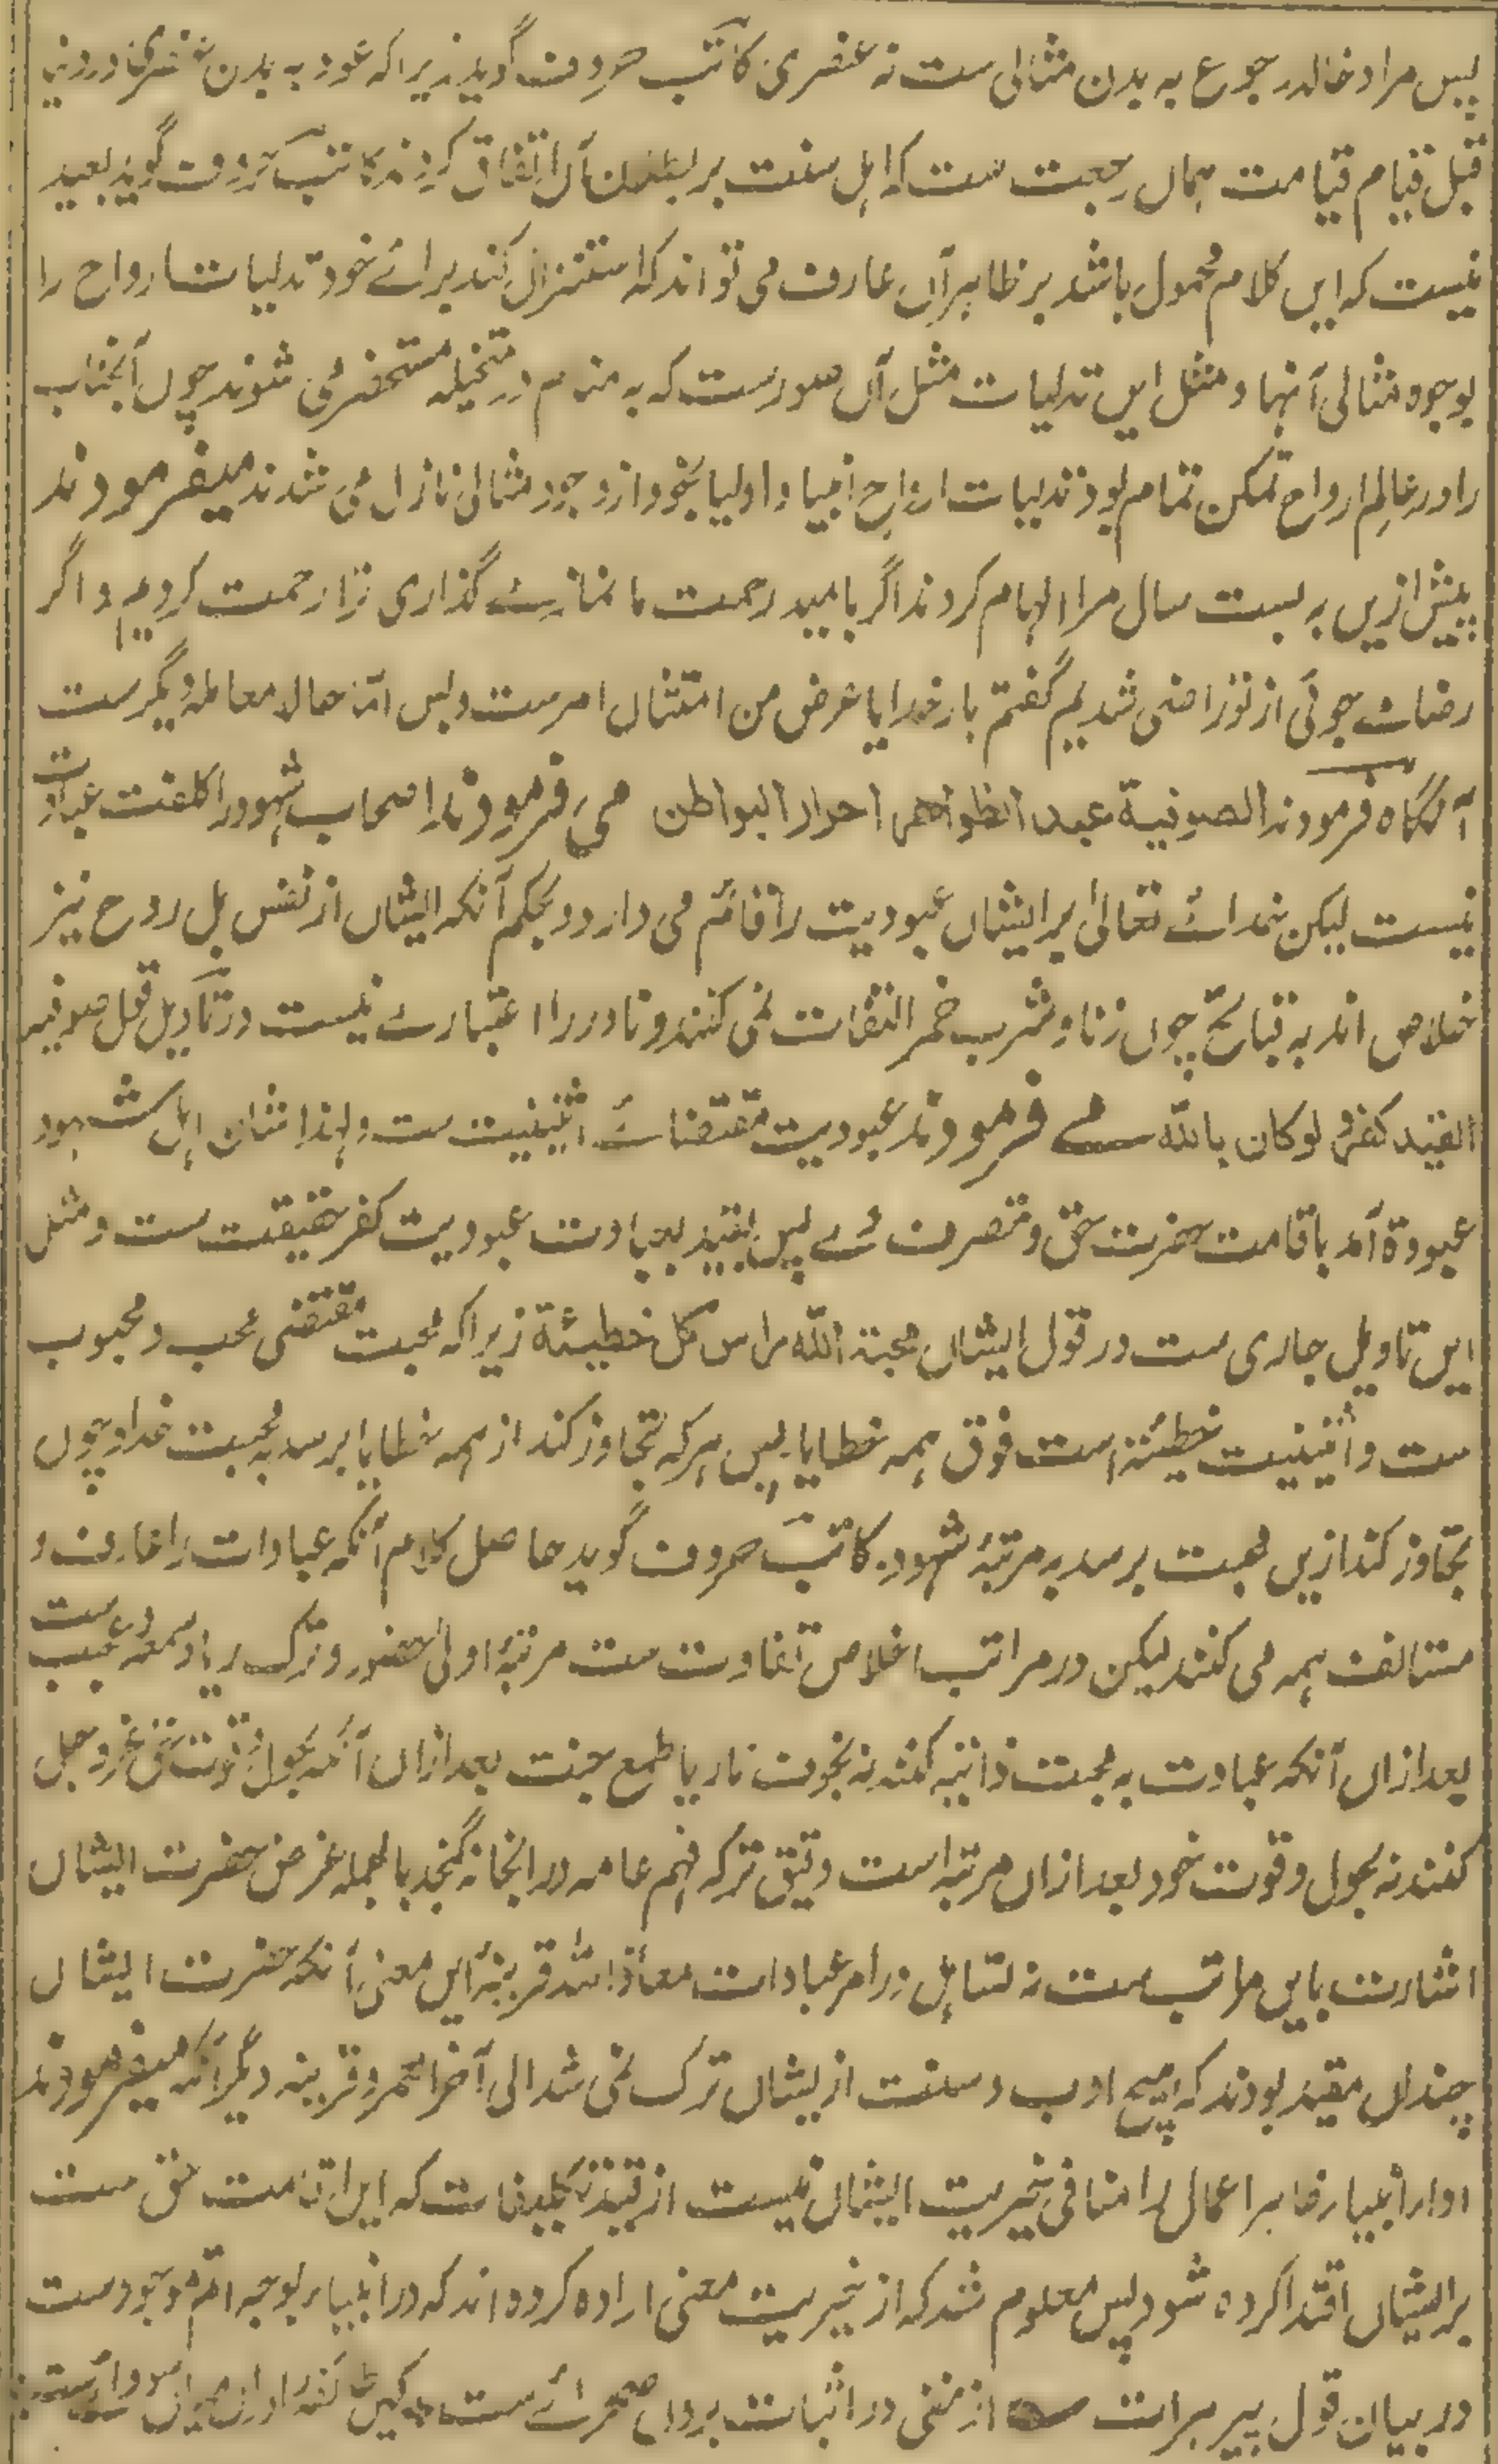 پس مراد خالد رجوع به بدن مثالی ست نه عنصری کاتب حروف گوید زیرا که عود به بدن عنصری در دنیا
قبل قیام قیامت همان رجعت ست که اہل سنت بر بطلان آں اتفاق کردند کاتب حروف گوید بعید
نیست که ایں کلام محمول باشد بر ظاہر آں عارف می تواند که استنزال کند برائے خود تدلیات ارواح را
بوجود مثالی آنہا و مثل ایں تدلیات مثل آں صورست که به منام در متخیله مستحضر می شوند چوں آنجناب
را در عالم ارواح تمکن تمام بود تدلیات ارواح انبیا و اولیا بنحو از وجود مثالی نازل می شدند میفرمودند
پیش ازیں به بست سال مرا الہام کردند اگر بامید رحمت ما نماز می گذاری ترا رحمت کردیم و اگر
رضا می جوئی از تو راضی شدیم گفتم بار خدایا غرض من امتثال امرست و بس اما حالا معامله دیگر ست
آنگاه فرمودند الصوفیة عبد الظواهر احرار البواطن می فرمودند اصحاب شہود را کلفت عبادات
نیست لیکن خدائے تعالی بر ایشاں عبودیت را قائم می دارد و بحکم آنکه ایشاں از نفس بل روح نیز
خلاص اند به قبائح چوں زنا و شرب خمر التفات نمی کنند و نادر را اعتبارے نیست در تاویل قول صوفیه
القید کفر و لو کان بالله می فرمودند عبودیت مقتضائے اثنینیت ست و لہذا شان اہل شہود
عبودة آمد باقامت حضرت حق و تصرف وے پس تقید بعبادت عبودیت کفر حقیقت ست و مثل
ایں تاویل جاری ست در قول ایشاں محبة الله راس کل خطیئة زیرا که محبت مقتضی محب و محبوب
ست و اثنینیت خطیئة است فوق ہمه خطایا پس ہر که تجاوز کند از ہمه خطایا برسد به محبت خدا و چوں
تجاوز کند ازیں محبت برسد به مرتبۂ شہود. کاتب حروف گوید حاصل کلام آنکه عبادات را عارف و
مستالف ہمه می کنند لیکن در مراتب اخلاص تفاوت ست مرتبۂ اولی حضور و ترک ریا و سمعه و عجب ست
بعد ازاں آنکه عبادت به محبت ذاتیه کنند نه بخوف نار یا طمع جنت بعد ازاں آنکه بحول و قوت حق عز و جل
کنند نه بحول و قوت خود بعد ازاں مرتبه است دقیق تر که فہم عامه در انجا نه گنجد بالجمله غرض حضرت ایشاں
اشارت بایں مراتب ست نه تساہل در امر عبادات معاذ الله قرینۂ ایں معنی آنکه حضرت ایشاں
چنداں مقید بودند که ہیچ ادب و سنت از یشاں ترک نمی شد الی آخر العمر و قرینه دیگر آنکه میفرمودند
ادوار انبیا ظاہر اعمال را منافی خیریت ایشاں نیست از قید تکلیفات که ایں اقامت حق ست
بر ایشاں اقتدا کرده شود پس معلوم شد که از خیریت معنی اراده کرده اند که در انبیا بوجه اتم موجودست
در بیان قول پیر ہرات از نفی در اثبات بروں صحرائے ست